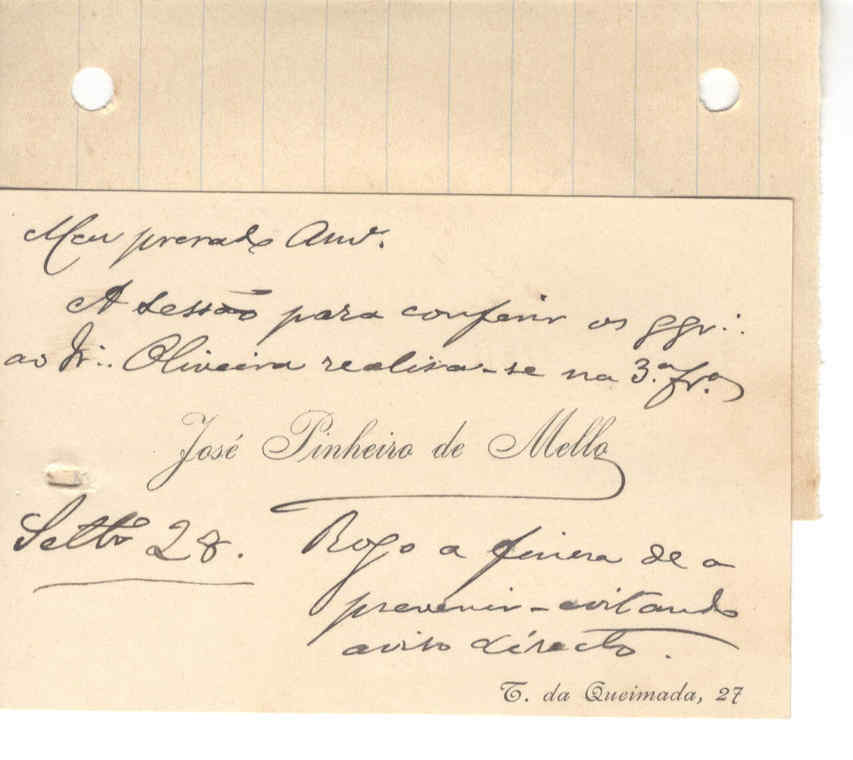 Meu presado Amº.
A sessão para conferir os ggr∴
ao Ir∴ Oliveira realisa-se na 3.ª fr.ª
José Pinheiro de Mello
Settbrº 28.
Rogo a fineza de o
prevenir - evitando
aviso directo.
T. da Queimada, 27